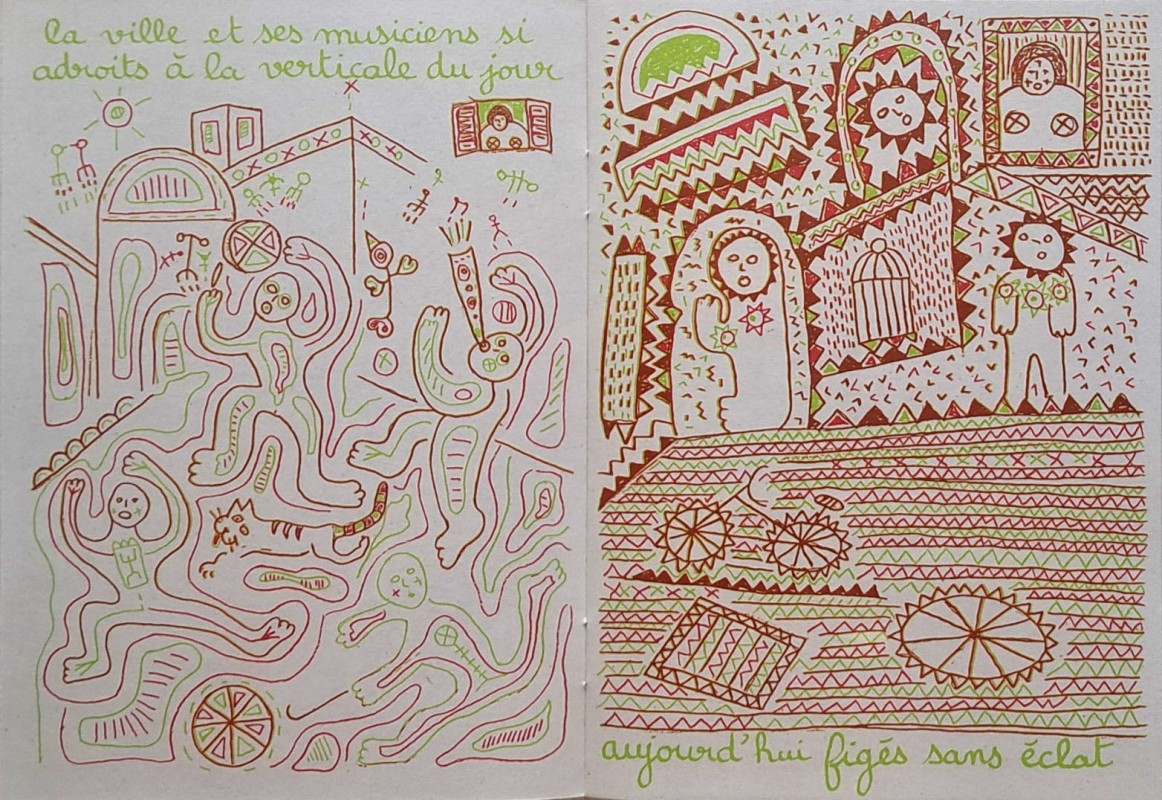 la ville et ses musiciens si
adroits à la verticale du jour
aujourd'hui figés sans éclat